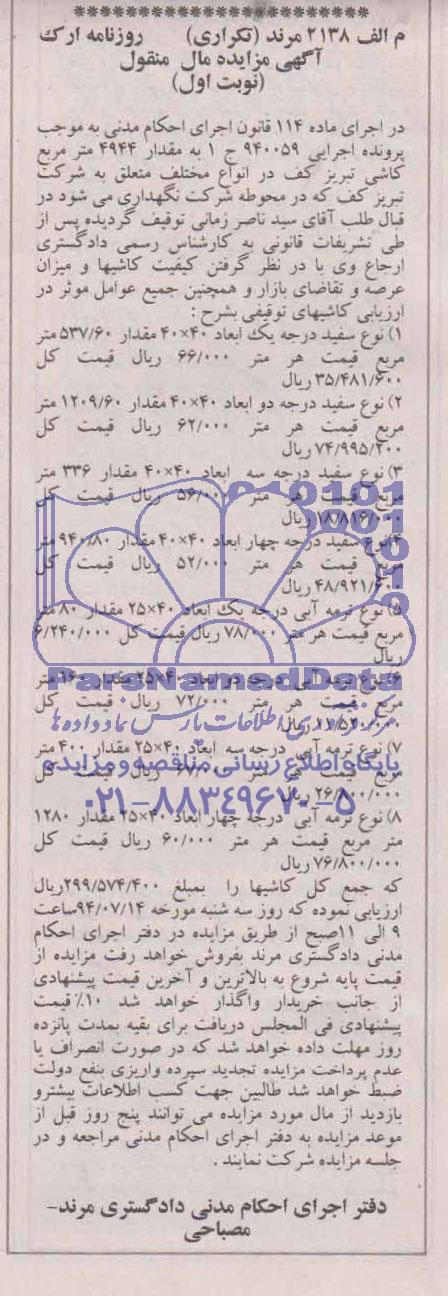 م الف ۲۱۳۸ مرند (تکراری) روزنامه ارک
آگهی مزایده مال منقول
(نوبت اول)
در اجرای ماده ۱۱۴ قانون اجرای احکام مدنی به موجب
پرونده اجرایی ۹۴۰۰۵۹ ج ۱ به مقدار ۴۹۴۴ متر مربع
کاشی تبریز کف در انواع مختلف متعلق به شرکت
تبریز کف که در محوطه شرکت نگهداری می شود در
قبال طلب آقای سید ناصر زمانی توقیف گردیده پس از
طی تشریفات قانونی به کارشناس رسمی دادگستری
ارجاع وی با در نظر گرفتن کیفیت کاشیها و میزان
عرضه و تقاضای بازار و همچنین جمیع عوامل موثر در
ارزیابی کاشیهای توقیفی بشرح :
۱) نوع سفید درجه یک ابعاد ۴۰×۴۰ مقدار ۵۳۷/۶۰ متر
مربع قیمت هر متر ۶۶/۰۰۰ ریال قیمت کل
۳۵/۴۸۱/۶۰۰ ریال
۲) نوع سفید درجه دو ابعاد ۴۰×۴۰ مقدار ۱۲۰۹/۶۰ متر
مربع قیمت هر متر ۶۲/۰۰۰ ریال قیمت کل
۷۴/۹۹۵/۲۰۰ ریال
۳) نوع سفید درجه سه ابعاد ۴۰×۴۰ مقدار ۳۳۶ متر
مربع قیمت هر متر ۵۶/۰۰۰ ریال قیمت کل
۱۸/۸۱۶/۰۰۰ ریال
۴) نوع سفید درجه چهار ابعاد ۴۰×۴۰ مقدار ۹۴۰/۸۰ متر
مربع قیمت هر متر ۵۲/۰۰۰ ریال قیمت کل
۴۸/۹۲۱/۶۰۰ ریال
۵) نوع ترمه آبی درجه یک ابعاد ۴۰×۲۵ مقدار ۸۰ متر
مربع قیمت هر متر ۷۸/۰۰۰ ریال قیمت کل ۶/۲۴۰/۰۰۰
ریال
۶) نوع ترمه آبی درجه دو ابعاد ۴۰×۲۵ مقدار ۱۶۰ متر
ParsNamadData
مربع قیمت هر متر ۷۲/۰۰۰ ریال قیمت کل
۱۱/۵۲۰/۰۰۰ ریال
مرکز فرآوری اطلاعات پارس نماد داده ها
۷) نوع ترمه آبی درجه سه ابعاد ۴۰×۲۵ مقدار ۴۰۰ متر
پایگاه اطلاع رسانی مناقصه و مزایده
مربع قیمت هر متر ۶۷/۰۰۰ ریال قیمت کل
۲۶/۸۰۰/۰۰۰ ریال
۰۲۱-۸۸۳۴۹۶۷۰-۵
۸) نوع ترمه آبی درجه چهار ابعاد ۴۰×۲۵ مقدار ۱۲۸۰
متر مربع قیمت هر متر ۶۰/۰۰۰ ریال قیمت کل
۷۶/۸۰۰/۰۰۰ ریال
که جمع کل کاشیها را بمبلغ ۲۹۹/۵۷۴/۴۰۰ ریال
ارزیابی نموده که روز سه شنبه مورخه ۹۴/۰۷/۱۴ ساعت
۹ الی ۱۱ صبح از طریق مزایده در دفتر اجرای احکام
مدنی دادگستری مرند بفروش خواهد رفت مزایده از
قیمت پایه شروع به بالاترین و آخرین قیمت پیشنهادی
از جانب خریدار واگذار خواهد شد ۱۰٪ قیمت
پیشنهادی فی المجلس دریافت برای بقیه بمدت پانزده
روز مهلت داده خواهد شد که در صورت انصراف یا
عدم پرداخت مزایده تجدید سپرده واریزی بنفع دولت
ضبط خواهد شد طالبین جهت کسب اطلاعات بیشتر و
بازدید از مال مورد مزایده می توانند پنج روز قبل از
موعد مزایده به دفتر اجرای احکام مدنی مراجعه و در
جلسه مزایده شرکت نمایند .
دفتر اجرای احکام مدنی دادگستری مرند-
مصباحی